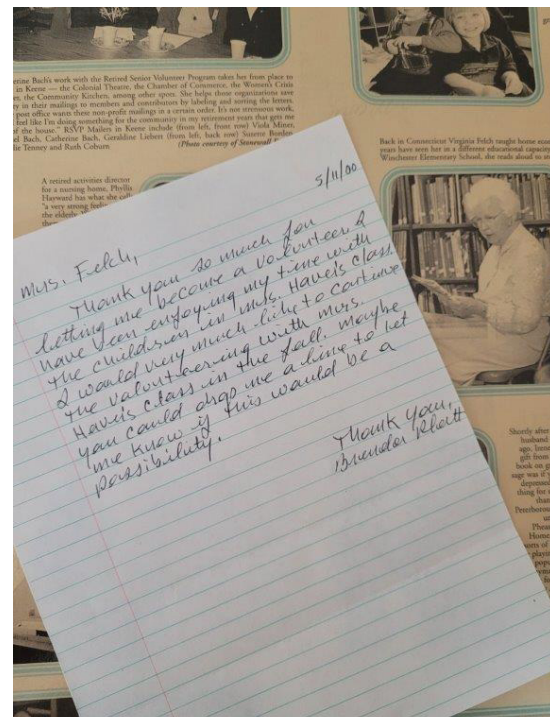 erine Bach's work with the Retired Senior Volunteer Program takes her from place to
in Keene — the Colonial Theatre, the Chamber of Commerce, the Women's Crisis
er, the Community Kitchen, among other spots. She helps those organizations save
y in their mailings to members and contributors by labeling and sorting the letters.
post office wants these non-profit mailings in a certain order. It's not strenuous work,
feel like I'm doing something for the community in my retirement years that gets me
f the house." RSVP Mailers in Keene include (from left, front row) Viola Miner,
d Bach, Catherine Bach, Geraldine Liebert (from left, back row) Susette Borden
lie Tenney and Ruth Coburn
(Photo courtesy of Stonewall
A retired activities director
for a nursing home, Phyllis
Hayward has what she calls
"a very strong feeling
the elderly.
Back in Connecticut Virginia Felch taught home econ
years have seen her in a different educational capacity
Winchester Elementary School, she reads aloud to st
5/11/00
Mrs. Felch,
Thank you so much for
letting me become a volunteer. I
have been enjoying my time with
the children in Mrs. Have's class.
I would very much like to continue
the volunteering with Mrs.
Have's class in the fall. Maybe
you could drop me a line to let
me know if this would be a
possibility.
Thank you,
Brenda
Shortly after
husband
ago, Irene
gift from
book on g
sage was if y
depressed
thing for
than
Peterborou
Pheas
Home
orts of
playe
popu